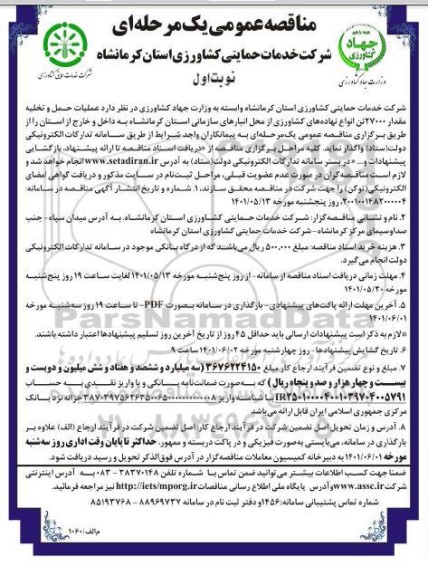 مناقصه عمومی یک مرحله‌ای
شرکت خدمات حمایتی کشاورزی استان کرمانشاه
نوبت اول
وزارت جهاد کشاورزی
شرکت خدمات حمایتی کشاورزی
شرکت خدمات حمایتی کشاورزی استان کرمانشاه وابسته به وزارت جهاد کشاورزی در نظر دارد عملیات حمل و تخلیه
مقدار ۲۷۰۰۰ تن انواع نهاده‌های کشاورزی از محل انبارهای سازمانی استان کرمانشاه به داخل و خارج از استان را از
طریق برگزاری مناقصه عمومی یک مرحله‌ای به پیمانکاران واجد شرایط از طریق سامانه تدارکات الکترونیکی
دولت(ستاد) واگذار نماید. کلیه مراحل برگزاری مناقصه از «دریافت اسناد مناقصه تا ارائه پیشنهاد، بازگشایی
پیشنهادات و... » در بستر سامانه تدارکات الکترونیکی دولت(ستاد) به آدرس www.setadiran.ir انجام خواهد شد و
لازم است مناقصه‌گران در صورت عدم عضویت قبلی، مراحل ثبت‌نام در سایت مذکور و دریافت گواهی امضای
الکترونیکی (توکن) را جهت شرکت در مناقصه محقق سازند. ۱. شماره و تاریخ انتشار آگهی مناقصه در سامانه:
روز پنجشنبه مورخه ۱۴۰۱/۰۵/۱۳
۲. نام و نشانی مناقصه‌گزار: شرکت خدمات حمایتی کشاورزی استان کرمانشاه، به آدرس میدان سپاه - جنب
صداوسیمای مرکز کرمانشاه - شرکت خدمات حمایتی کشاورزی استان کرمانشاه
۳. هزینه خرید اسناد مناقصه: مبلغ ۵۰۰,۰۰۰ ریال می‌باشد که از درگاه بانکی موجود در سامانه تدارکات الکترونیکی
دولت انجام می‌گیرد.
۴. مهلت زمانی دریافت اسناد مناقصه از سامانه - از روز پنج‌شنبه مورخه ۱۴۰۱/۰۵/۱۳ لغایت ساعت ۱۹ روز پنج‌شنبه
مورخه ۱۴۰۱/۰۵/۲۰
۵. آخرین مهلت ارائه پاکت‌های پیشنهادی - بارگذاری در سامانه بصورت PDF - تا ساعت ۱۹ روز سه‌شنبه مورخه
۱۴۰۱/۰۶/۰۱
*لازم به ذکر است پیشنهادات ارسالی باید حداقل ۴۵ روز از تاریخ آخرین روز تسلیم پیشنهادها اعتبار داشته باشند.
۶. تاریخ گشایش پیشنهادها - روز چهارشنبه مورخه ۱۴۰۱/۰۶/۰۲ ساعت ۹
۷. مبلغ و نوع تضمین فرآیند ارجاع کار مبلغ ۳۶۷۶۲۲۴۱۵۰ (سه میلیارد و ششصد و هفتاد و شش میلیون و دویست و
بیست و چهار هزار و صد و پنجاه ریال) که به صورت ضمانت‌نامه بانکی و یا واریز نقدی به حساب
با شناسه واریز خزانه نزد بانک
مرکزی جمهوری اسلامی ایران قابل ارائه می‌باشد
۸. آدرس و زمان تحویل اصل تضمین شرکت در فرآیند ارجاع کار: اصل تضمین شرکت در فرآیند ارجاع کار (الف) علاوه بر
بارگذاری در سامانه، می‌بایستی به‌صورت فیزیکی و در پاکت دربسته و ممهور، حداکثر تا پایان وقت اداری روز سه‌شنبه
مورخه ۱۴۰۱/۰۶/۰۱ به دبیرخانه کمیسیون معاملات مناقصه‌گزار در آدرس فوق‌الذکر تحویل و رسید دریافت شود.
ضمناً جهت کسب اطلاعات بیشتر می‌توانید ضمن تماس با شماره تلفن ۳۸۳۷۰۱۴۸ - ۰۸۳ به آدرس اینترنتی
شرکت www.assc.ir و آدرس پایگاه ملی اطلاع رسانی مناقصات http://iets/mporg.ir نیز مراجعه فرمائید.
شماره تماس پشتیبانی سامانه: ۱۴۵۶ و دفتر ثبت نام در سامانه ۸۸۹۶۹۷۳۷ - ۸۵۱۹۳۷۶۸
م الف: ۱۰۶۰
ParsNamadData